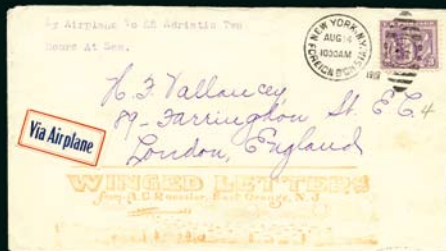 By Airplane to SS Adriatic Two
Hours At Sea.
NEW YORK, N.Y.
AUG 14
1030AM
1919
FOREIGN STA.
H. F. Vallancey
89 - Farringdon St. E.C. 4
London, England
Via Airplane
WINGED LETTERS
from A C Roessler, East Orange, N. J.